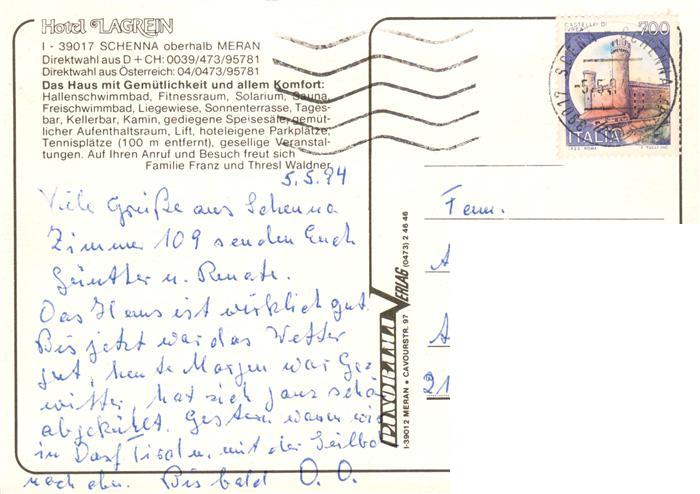 Hotel LAGREIN
I - 39017 SCHENNA oberhalb MERAN
Direktwahl aus D + CH: 0039/473/95781
Direktwahl aus Österreich: 04/0473/95781
Das Haus mit Gemütlichkeit und allem Komfort:
Hallenschwimmbad, Fitnessraum, Solarium, Sauna,
Freischwimmbad, Liegewiese, Sonnenterrasse, Tages-
bar, Kellerbar, Kamin, gediegene Speisesäle, gemüt-
licher Aufenthaltsraum, Lift, hoteleigene Parkplätze,
Tennisplätze (100 m entfernt), gesellige Veranstal-
tungen. Auf Ihren Anruf und Besuch freut sich
Familie Franz und Thresl Waldner
5.5.94
Viele Grüße aus Schenna
Zimmer 109 senden Euch
Günther u. Renate.
Das Haus ist wirklich gut.
Bis jetzt war das Wetter
gut, heute Morgen war Ge-
witter, hat sich ganz schön
abgekühlt. Gestern waren wir
in Dorf Tirol u. mit der Seilba
nach oben. Bis bald O. O.
CASTELLO DI
700
ITALIA
Fam.
A
A
21
VERLAG (0473) 2 46 46
I-39012 MERAN • CAVOURSTR. 97